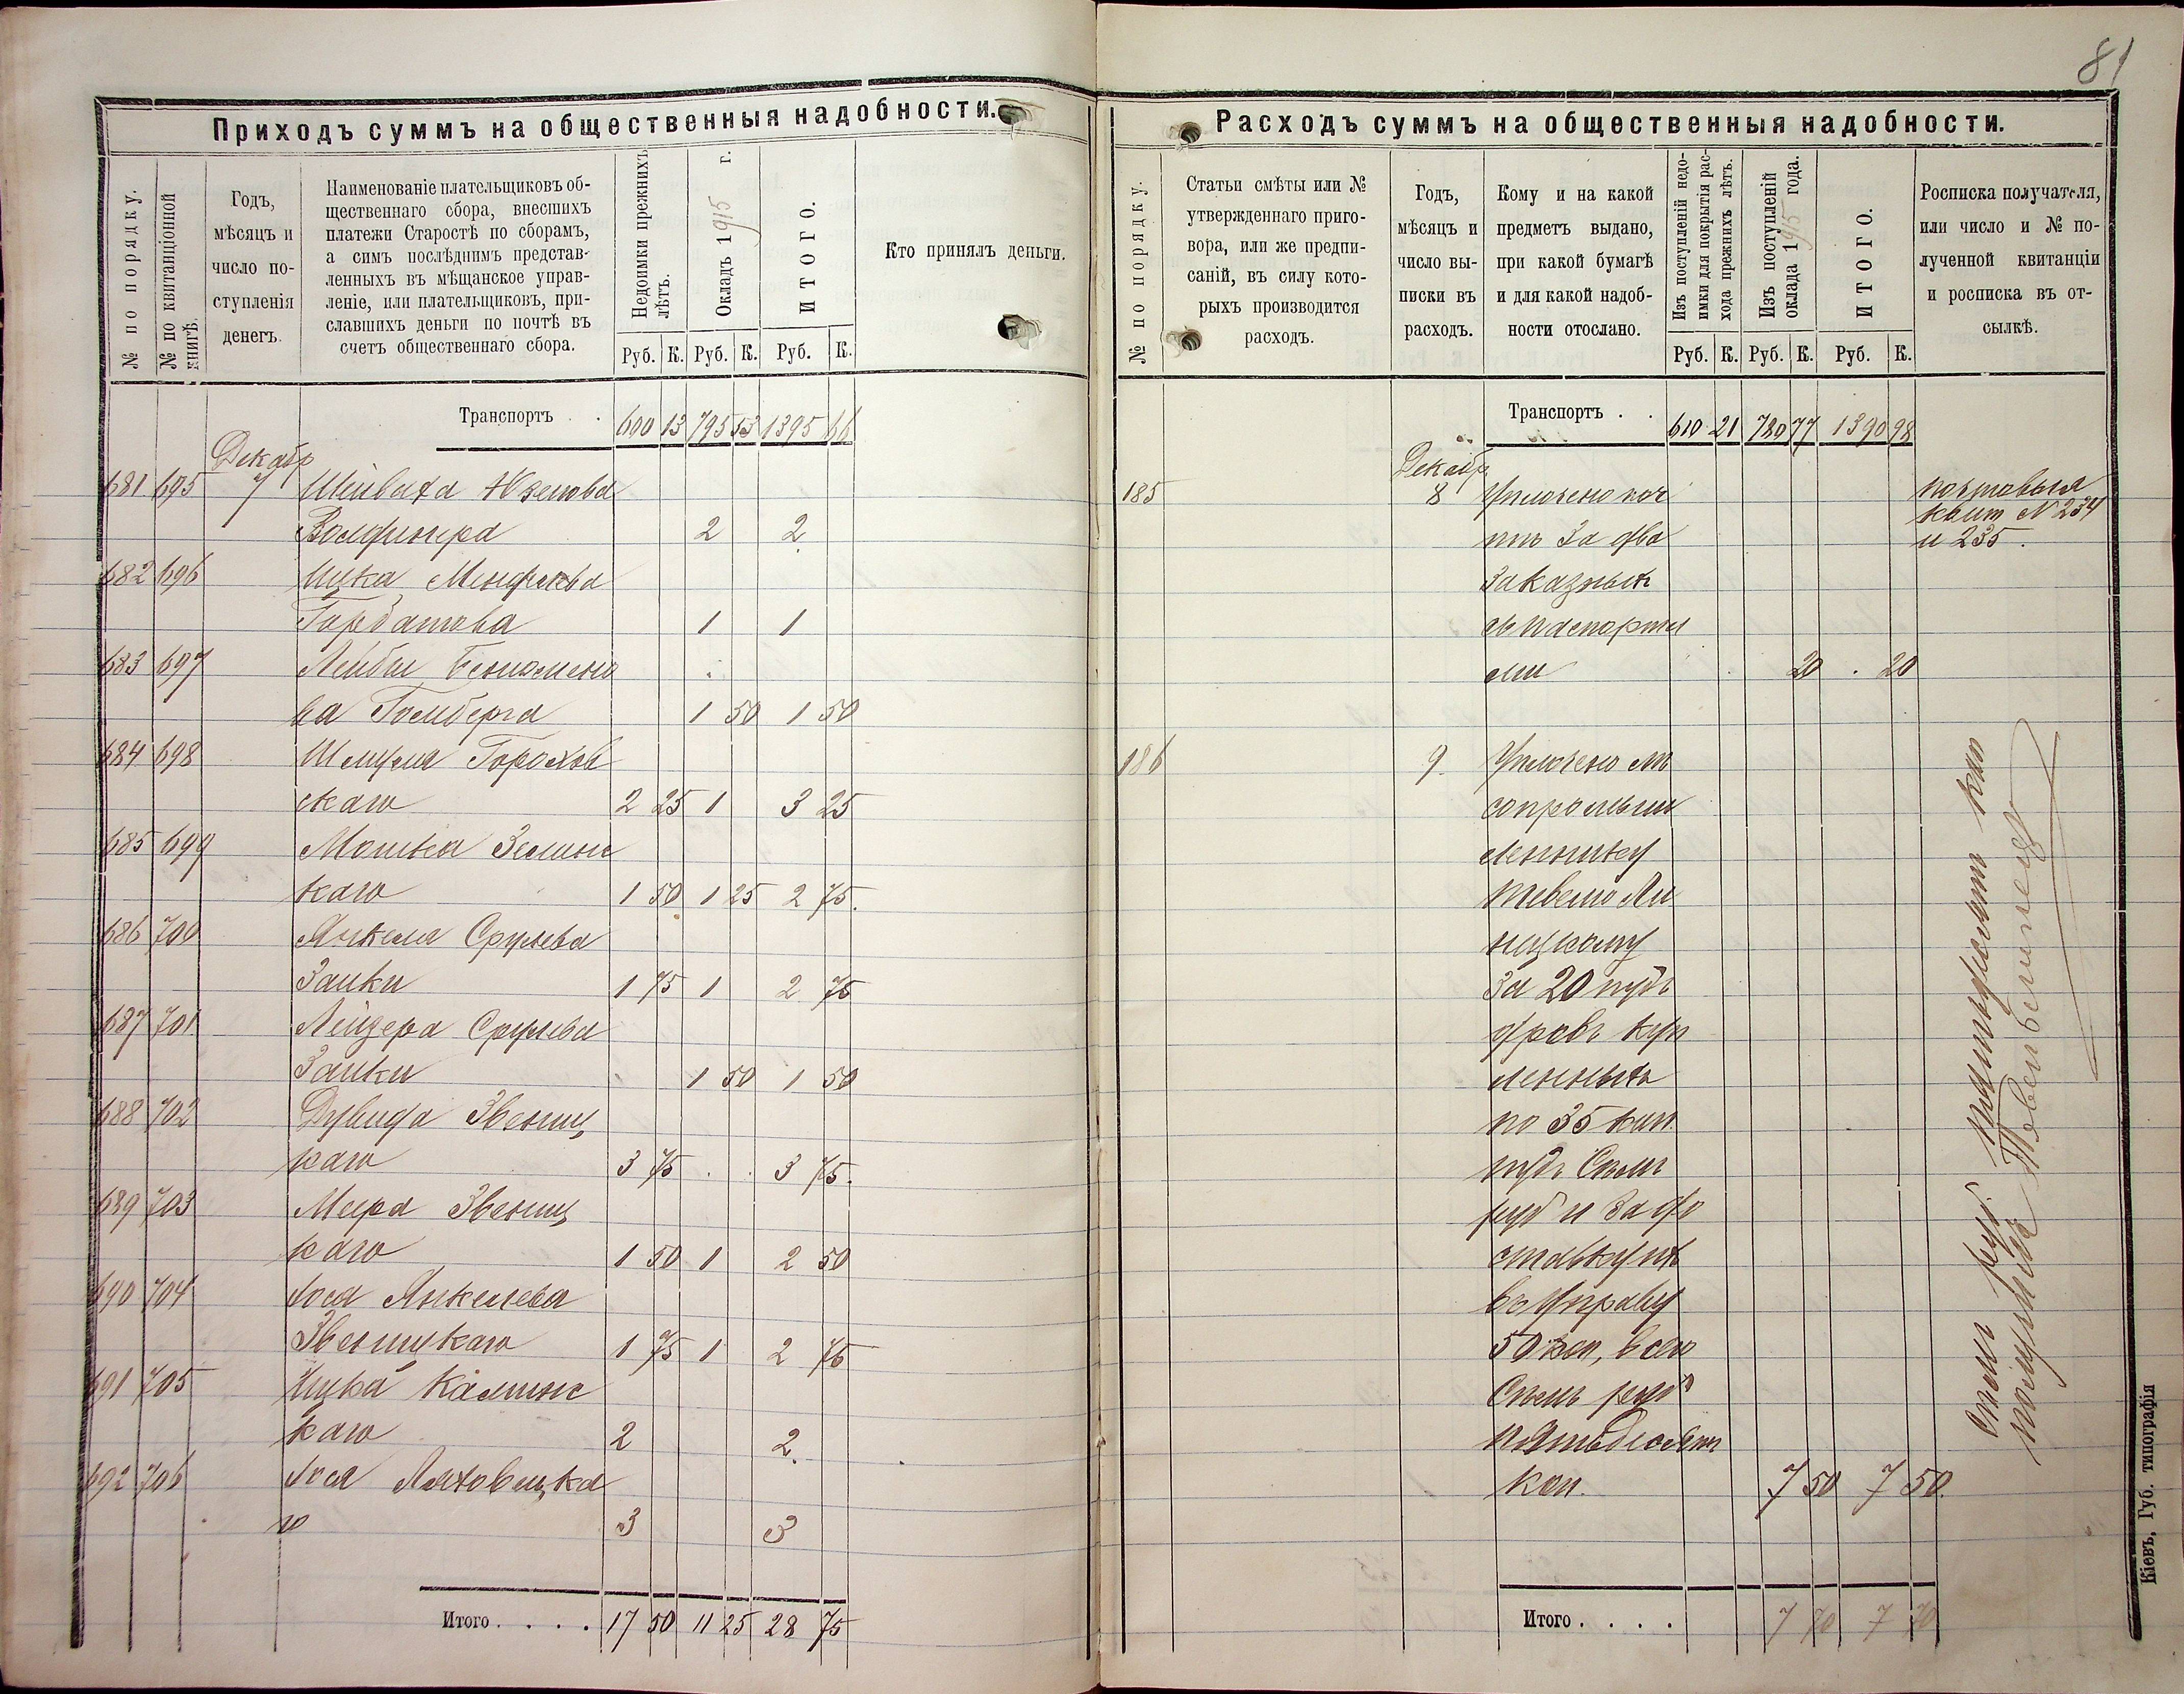 81
Приходъ суммъ на общественныя надобности.
№ по порядку.
№ по квитанціонной книгѣ.
Годъ,
мѣсяцъ и
число по-
ступленія
денегъ.
Наименованіе плательщиковъ об-
щественнаго сбора, внесшихъ
платежи Старостѣ по сборамъ,
а симъ послѣднимъ представ-
ленныхъ въ мѣщанское управ-
леніе, или плательщиковъ, при-
славшихъ деньги по почтѣ въ
счетъ общественнаго сбора.
Недоимки прежнихъ
лѣтъ.
Окладъ 1915 г.
ИТОГО.
Кто принялъ деньги.
Руб. К. Руб. К. Руб. К.
Транспортъ . . 600 13 795 53 1395 66
Декабр
681 695 7 Шейваха
2 2
682 696 Ицка
Горбатова 1 1
683 697 Лейбы
ва Гольдберга 1 50 1 50
684 698 Шмуля Горохов
скаго 2 25 1 3 25
685 699 Мошка Зелинс
каго 1 50 1 25 2 75
686 700 Янкеля Срулева
Заики 1 75 1 2 75
687 701 Лейзера Срулева
Заики 1 50 1 50
688 702 Дувида Звениц
каго 3 75 3 75
689 703 Меера Звениц
каго 1 50 1 2 50
690 704 Іося Янкелева
Звеницкаго 1 75 1 2 75
691 705 Ицка Калинс
каго 2 2
692 706 Іося Ляховецка
го 3 3
Итого . . . . 17 50 11 25 28 75
Расходъ суммъ на общественныя надобности.
№ по порядку.
Статьи смѣты или №
утвержденнаго приго-
вора, или же предпи-
саній, въ силу кото-
рыхъ производится
расходъ.
Годъ,
мѣсяцъ и
число вы-
писки въ
расходъ.
Кому и на какой
предметъ выдано,
при какой бумагѣ
и для какой надоб-
ности отослано.
Изъ поступленій недо-
имки для покрытія рас-
хода прежнихъ лѣтъ.
Изъ поступленій
оклада 1915 года.
ИТОГО.
Росписка получателя,
или число и № по-
лученной квитанціи
и росписка въ от-
сылкѣ.
Руб. К. Руб. К. Руб. К.
Транспортъ . . 610 21 780 77 1390 98
Декабр
185 8 Уплочено поч
тѣ за два
заказных
съ паспорта
ми 20 20
почтовыя
квит № 234
и 235.
186 9 Уплочено лѣ
сопромыш
леннику
Тевелю Ли
нецкому
за 20 пуд
дровъ куп
ленныхъ
по 35 коп.
пудъ Семь
руб и за до
ставку их
въ Управу
50 коп, всего
Семь руб
пятьдесят
коп. 7 50 7 50
Семь руб. пятьдесятъ коп
получилъ
Итого . . . . 7 70 7 70
Кіевъ, Губ. типографія